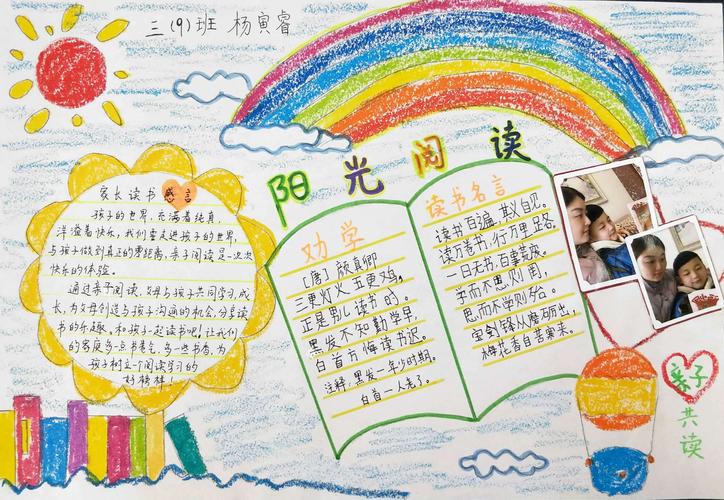 三(9)班 杨寅睿
阳光阅读
家长读书感言
孩子的世界,充满着纯真,
洋溢着快乐,我们要走进孩子的世界,
与孩子做到真正的零距离,亲子阅读是一次次
快乐的体验。
通过亲子阅读,父母与孩子共同学习,成
长,为父母创造与孩子沟通的机会,分享读
书的乐趣,和孩子一起读书吧!让我们
的家庭多一点书香气,多一些书香,为
孩子树立一个阅读学习的
好榜样!
劝学
[唐] 颜真卿
三更灯火五更鸡,
正是男儿读书时。
黑发不知勤学早,
白首方悔读书迟。
注释:黑发一年少时期。
白首一人老了。
读书名言
读书百遍,其义自见。
读万卷书,行万里路。
一日无书,百事荒废。
学而不思则罔,
思而不学则殆。
宝剑锋从磨砺出,
梅花香自苦寒来。
亲子
共读